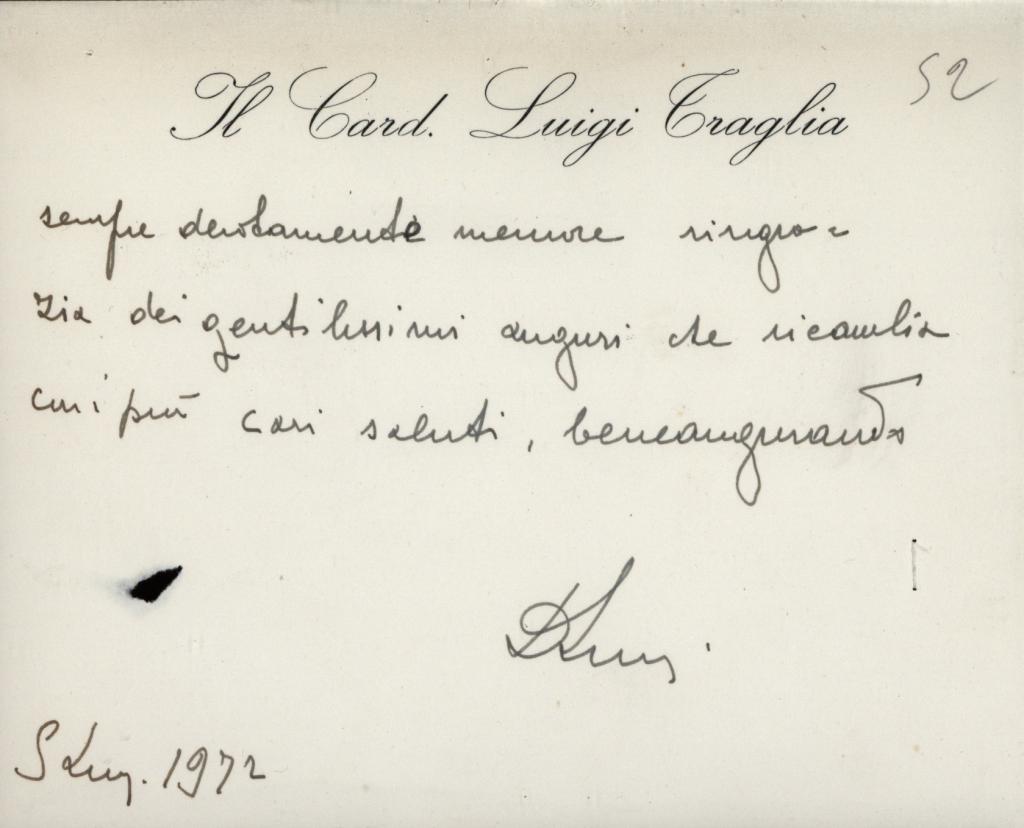 52
Il Card. Luigi Traglia
sempre devotamente memore ringra=
zia dei gentilissimi auguri che ricambia
coi più cari saluti, beneaugurando
S. Luigi 1972